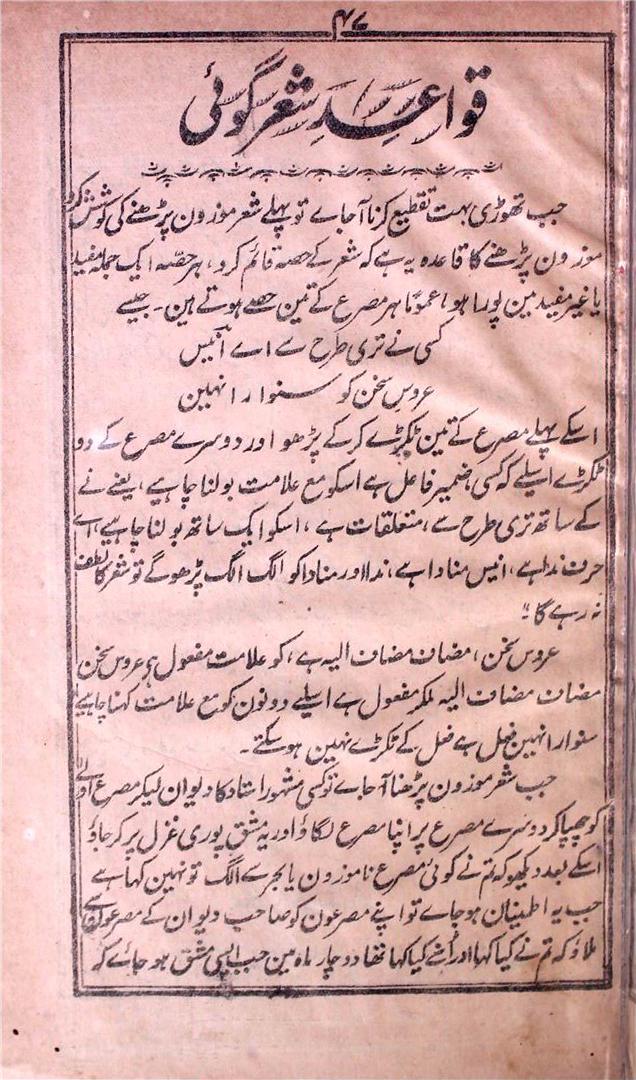 ۴۷
قواعدِ شعر گوئی
جب تھوڑی بہت تقطیع کرنا آجاے تو پہلے شعر موزون پڑھنے کی کوشش کرو
موزون پڑھنے کا قاعدہ یہ ہے کہ شعر کے حصہ قائم کرو، ہر حصہ ایک جملہ مفید
یا غیر مفید مین پورا ہو عموماً ہر مصرع کے تین حصے ہوتے ہین۔ جیسے
کسی نے تری طرح سے اے انیس
عروسِ سخن کو سنوارا نہین
اسکے پہلے مصرع کے تین ٹکڑے کرکے پڑھو اور دوسرے مصرع کے دو
ٹکڑے اسلیے کہ کسی ضمیر فاعل ہے اسکو مع علامت بولنا چاہیے، یعنے نے
کے ساتھ تری طرح سے، متعلقات ہے، اسکو ایک ساتھ بولنا چاہیے، اے
حرف ندا ہے، انیس منادا ہے، ندا اور منادا کو الگ الگ پڑھوگے تو شعر کا لطف
نہ رہے گا"
عروس سخن، مضاف مضاف الیہ ہے، کو علامت مفعول ہے عروس سخن
مضاف مضاف الیہ ملکر مفعول ہے اسلیے دونون کو مع علامت کہنا چاہیے
سنوارا نہین فعل ہے فعل کے ٹکڑے نہین ہوسکتے۔
جب شعر موزون پڑھنا آجاے تو کسی مشہور استاد کا دیوان لیکر مصرع اولیٰ
کو چھپا کر دوسرے مصرع پر اپنا مصرع لگاؤ اور یہ مشق پوری غزل پر کرجاؤ
اسکے بعد دیکھو کہ تم نے کوئی مصرع ناموزون یا بحر سے الگ تو نہین کہا ہے
جب یہ اطمینان ہوجاے تو اپنے مصرعون کو صاحب دیوان کے مصرعون سے
ملاؤ کہ تم نے کیا کہا اور اُسنے کیا کہا تھا دو چار ماہ مین جب ایسی مشق ہوجائے کہ